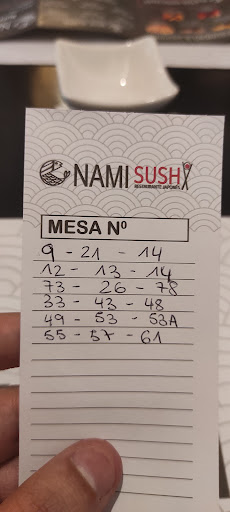 NAMI SUSHI
RESTAURANTE JAPONÉS
MESA Nº
9 - 21 - 14
12 - 13 - 14
73 - 26 - 78
33 - 43 - 48
49 - 53 - 53A
55 - 57 - 61